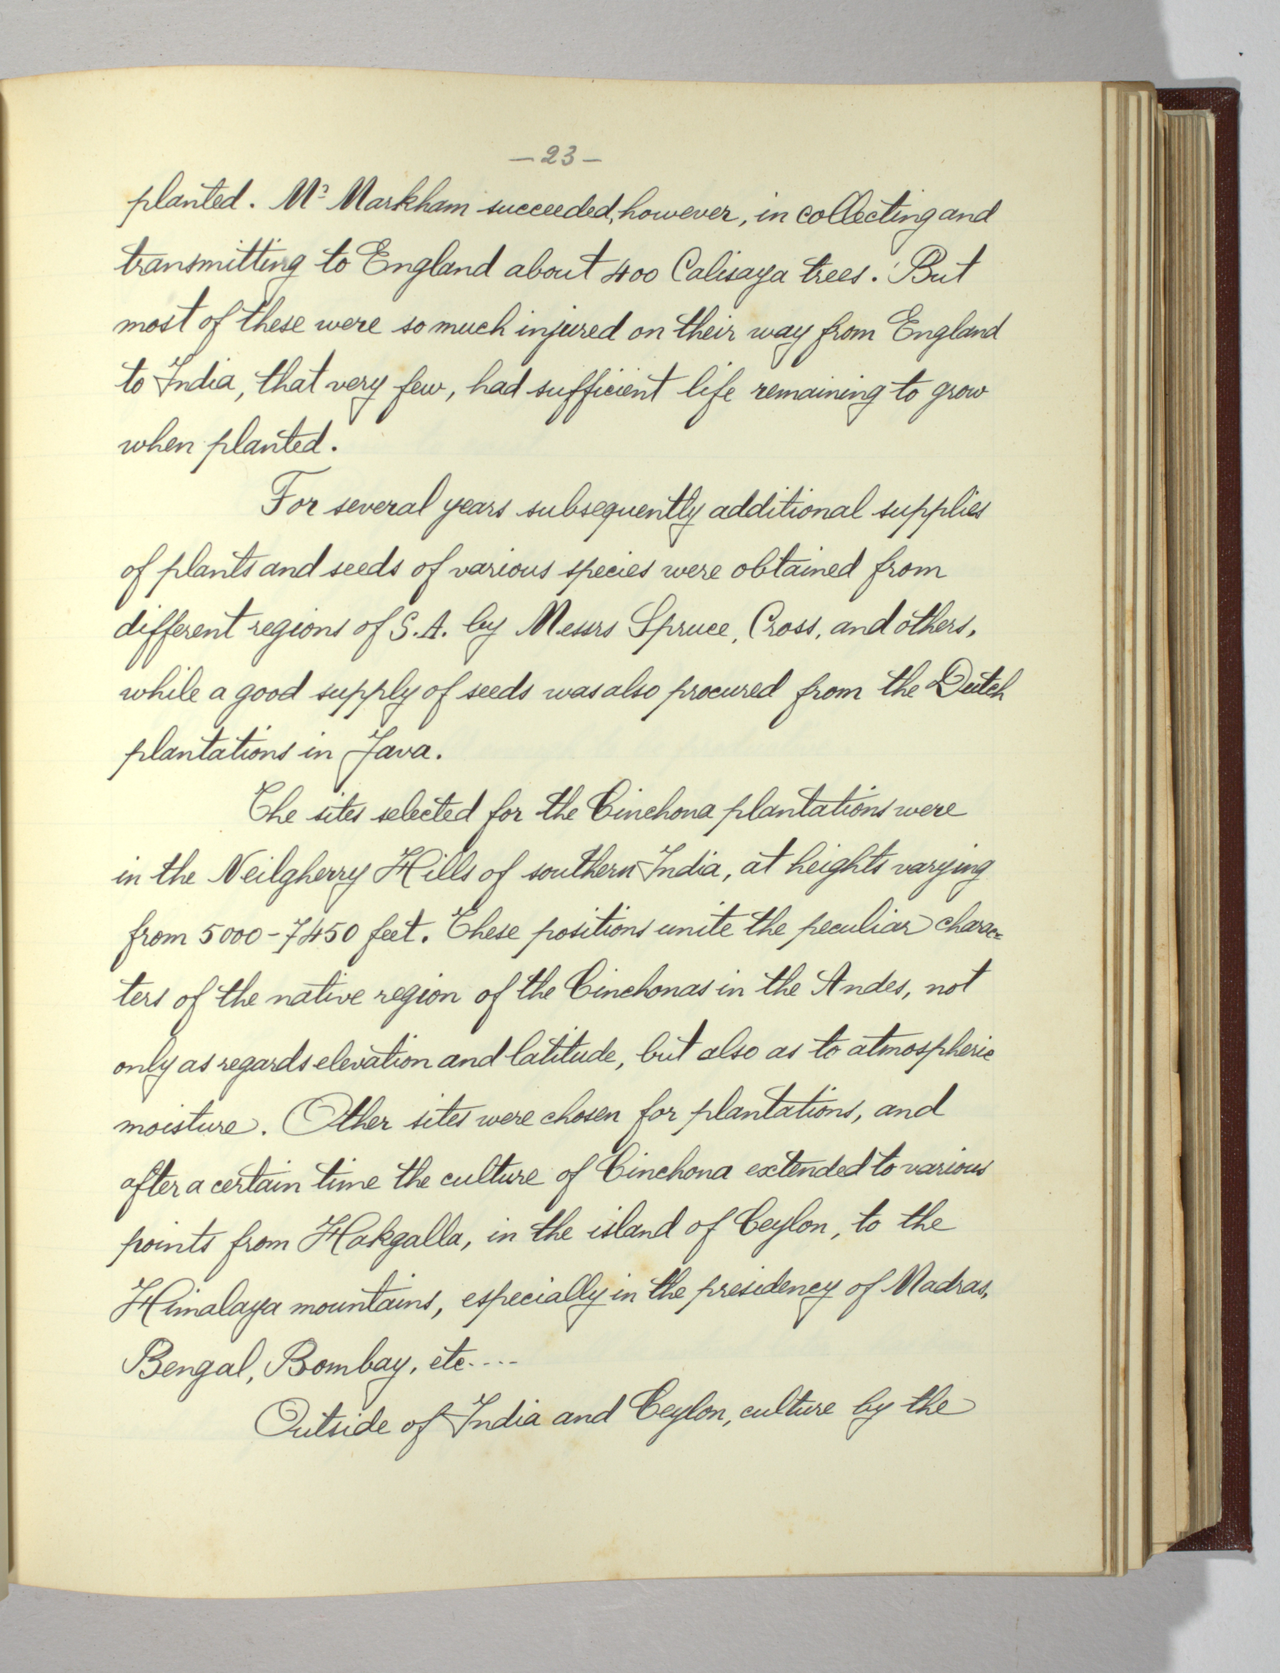 —23—
planted. Mr Markham succeeded, however, in collecting and
transmitting to England about 400 Calisaya trees. But
most of these were so much injured on their way from England
to India, that very few, had sufficient life remaining to grow
when planted.
For several years subsequently additional supplies
of plants and seeds of various species were obtained from
different regions of S.A. by Messrs Spruce, Cross, and others,
while a good supply of seeds was also procured from the Dutch
plantations in Java.
The sites selected for the Cinchona plantations were
in the Neilgherry Hills of southern India, at heights varying
from 5000-7450 feet. These positions unite the peculiar charac=
ters of the native region of the Cinchonas in the Andes, not
only as regards elevation and latitude, but also as to atmospheric
moisture. Other sites were chosen for plantations, and
after a certain time the culture of Cinchona extended to various
points from Hakgalla, in the island of Ceylon, to the
Himalaya mountains, especially in the presidency of Madras,
Bengal, Bombay, etc....
Outside of India and Ceylon, culture by the